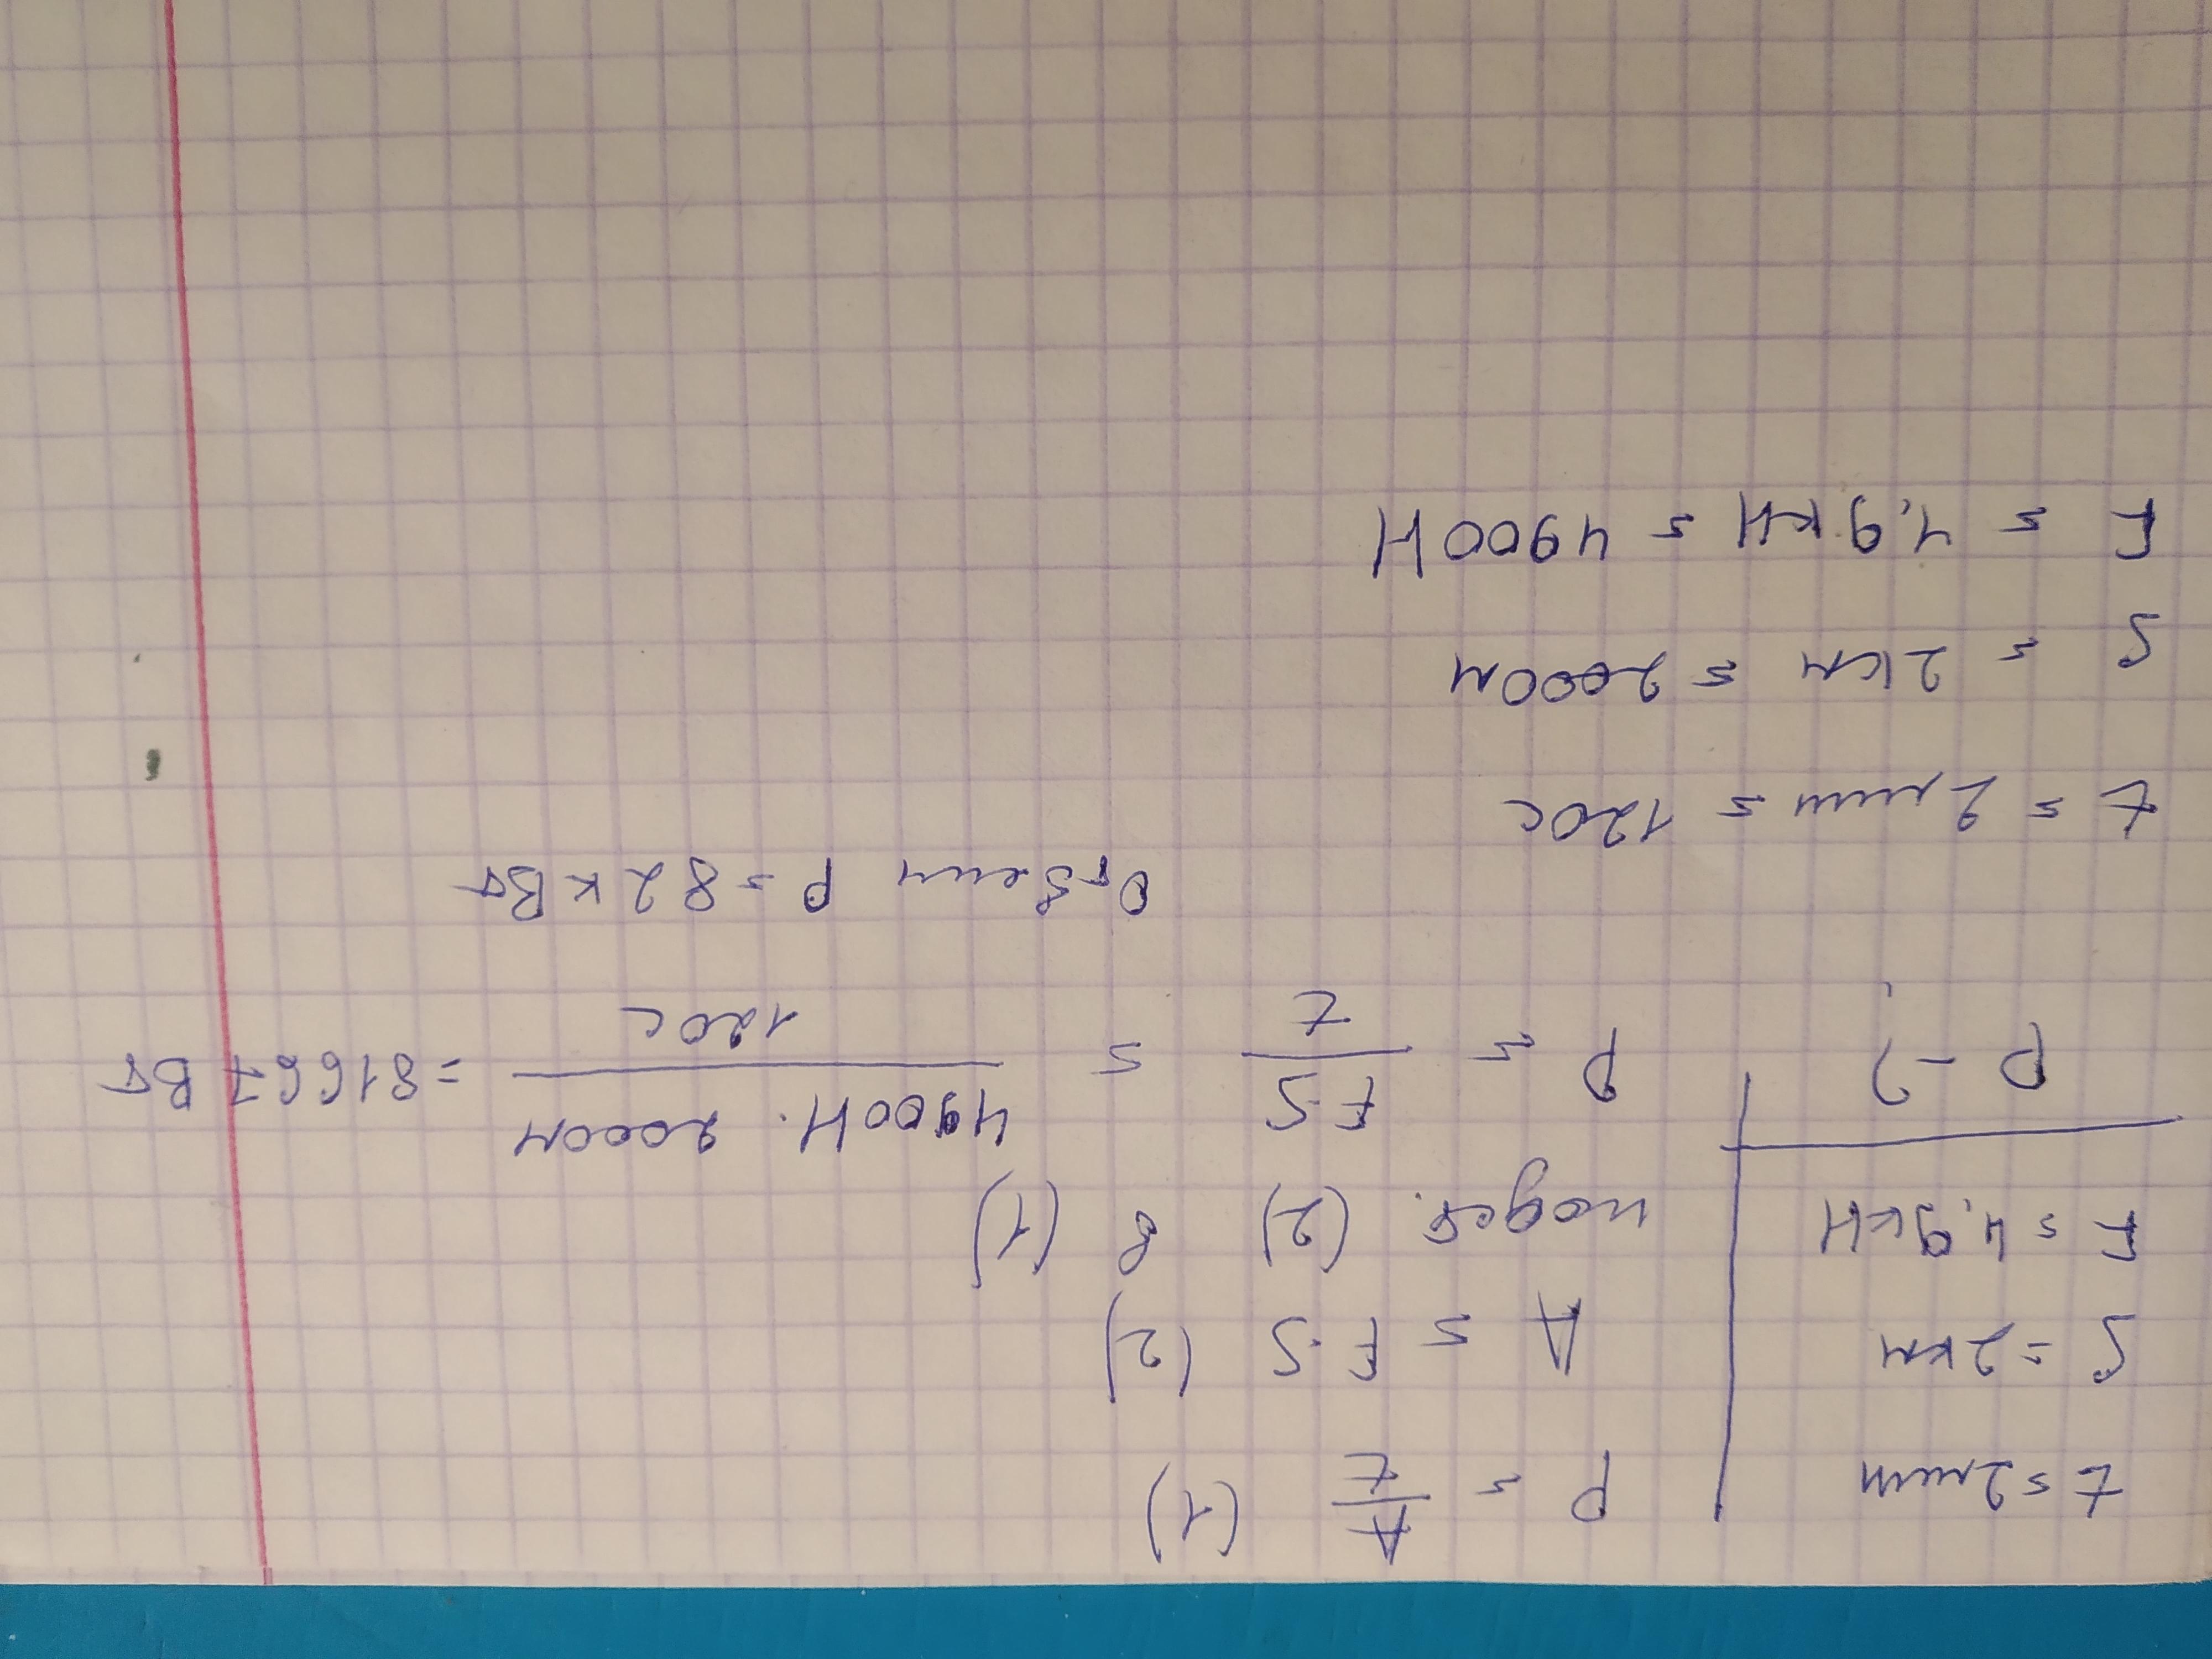 t = 2 мин
S = 2 км
F = 4,9 кН
P - ?
P = A/t (1)
A = F·S (2)
подст. (2) в (1)
P = F·S/t = 4900Н · 2000м/120с = 81667 Вт
Ответ P = 82 кВт
t = 2 мин = 120с
S = 2 км = 2000м
F = 4,9 кН = 4900Н